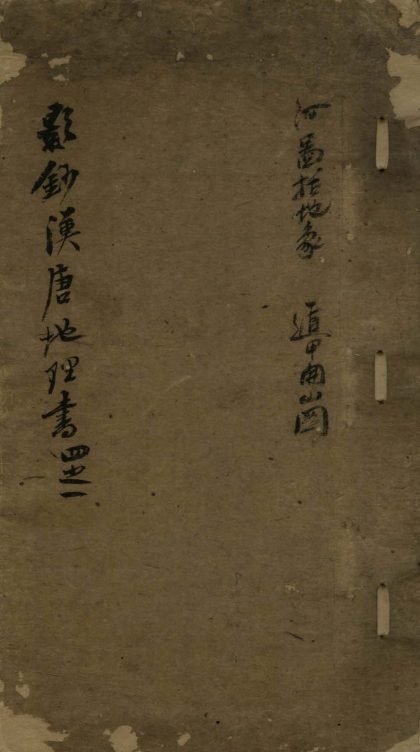 河圖括地象 遁甲開山圖
影鈔漢唐地理書 四之一